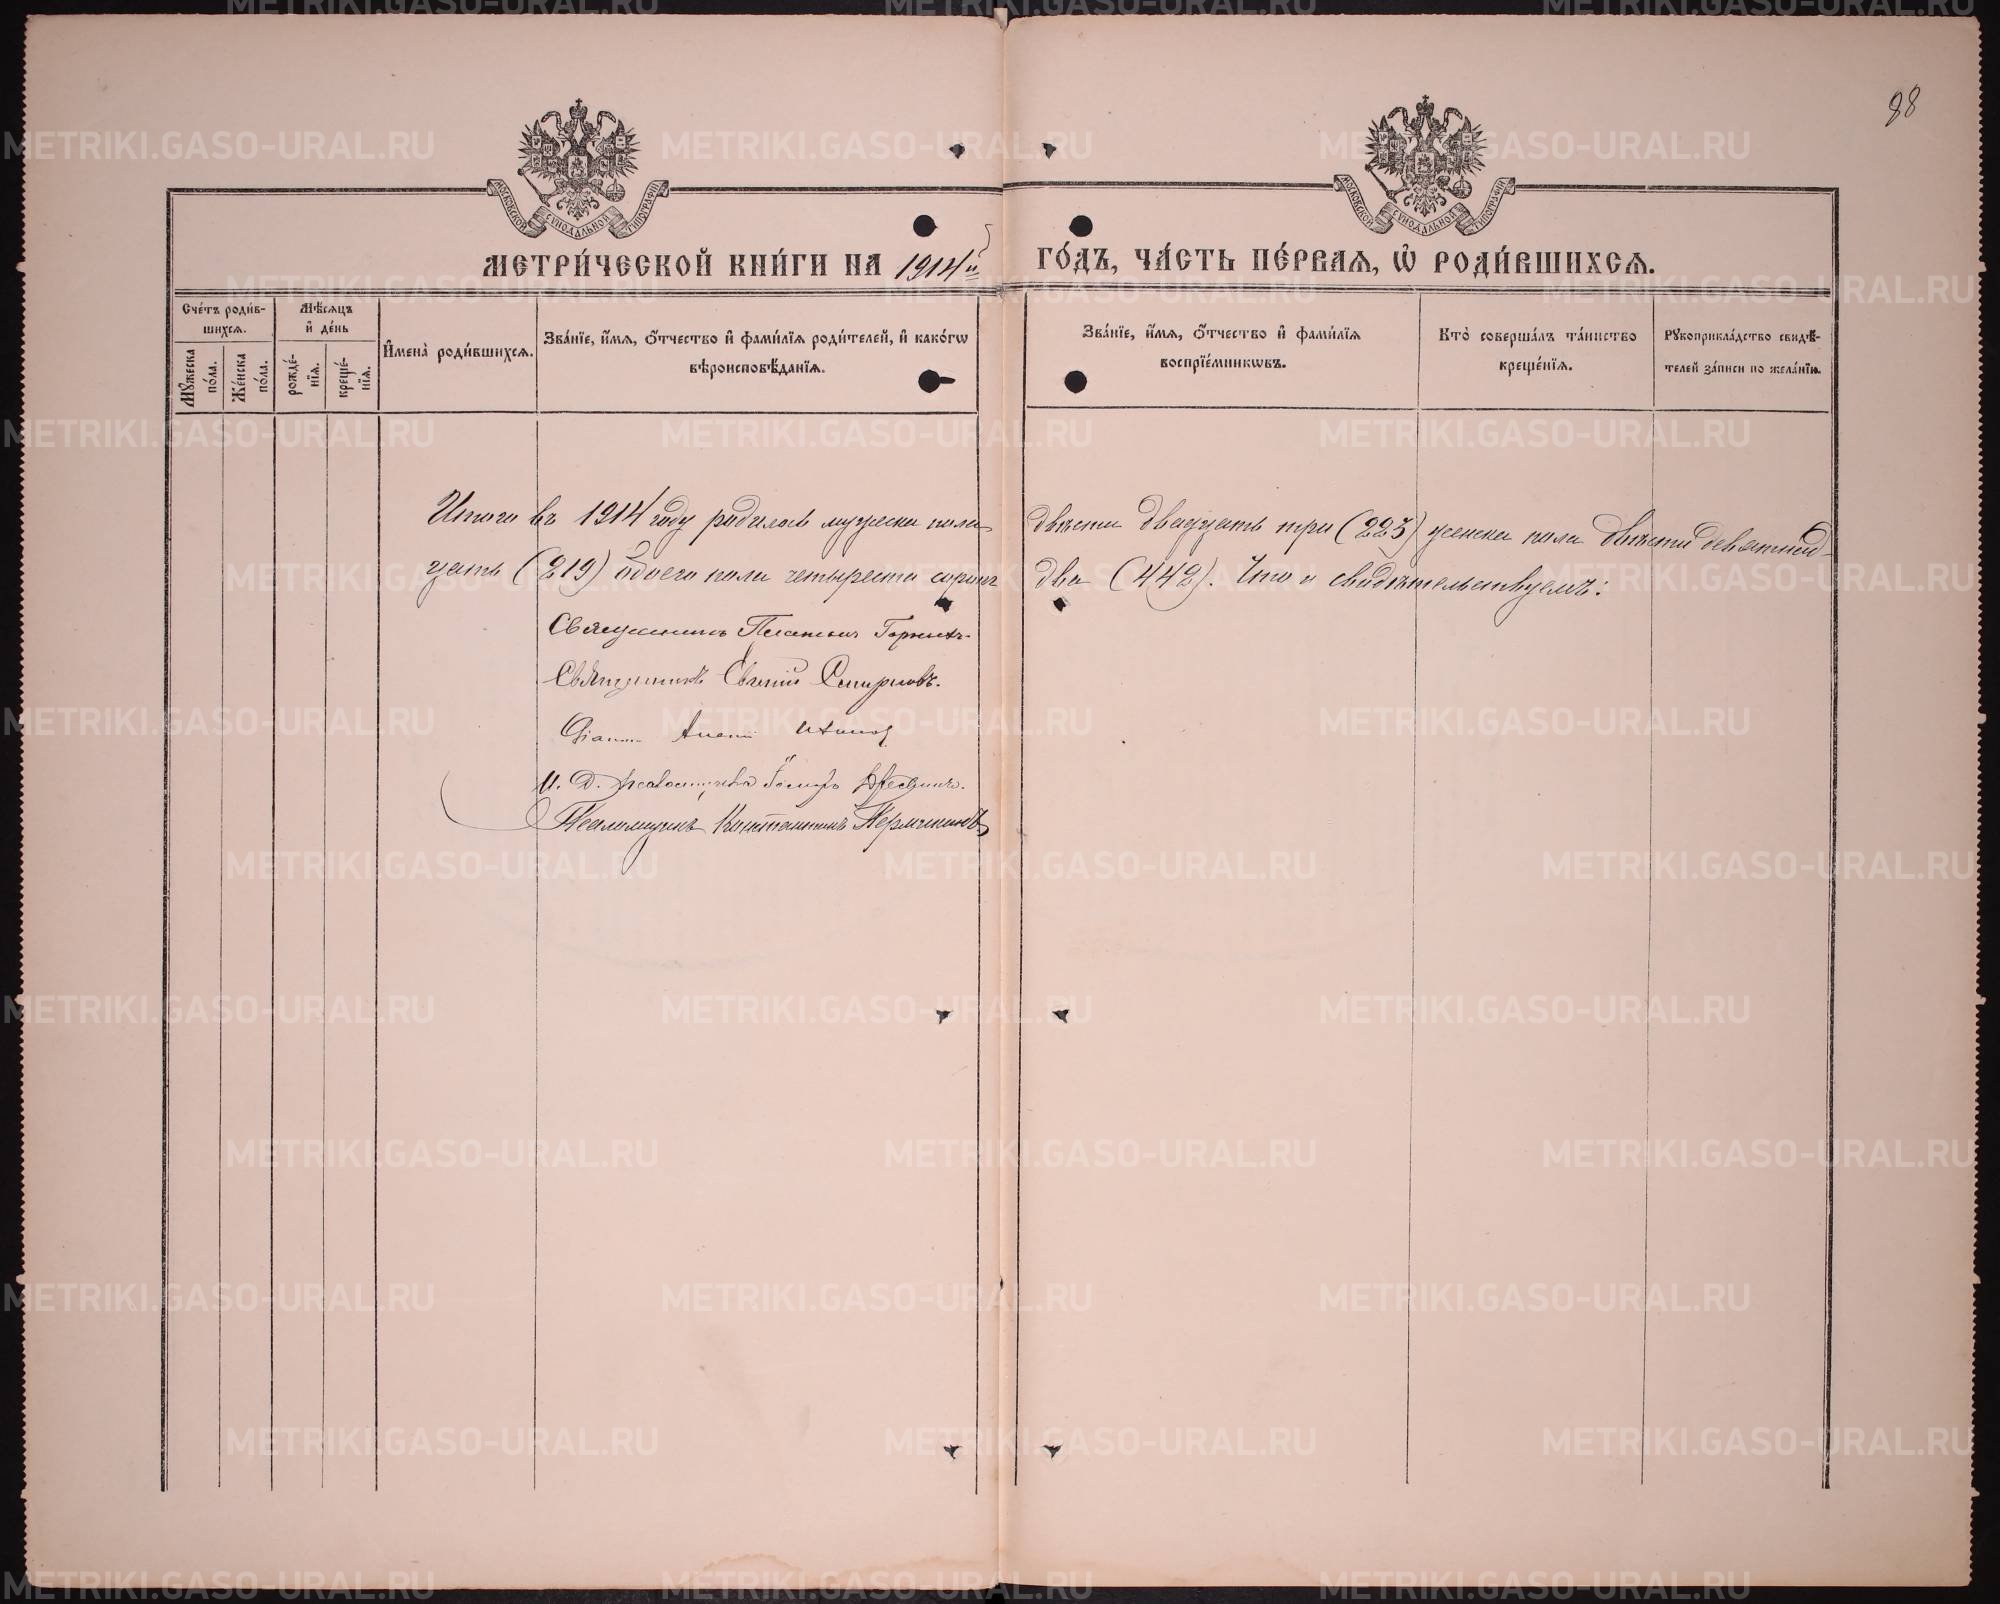 88
МОСКОВСКОЙ СѴНОДАЛЬНОЙ ТИПОГРАФІИ
МОСКОВСКОЙ СѴНОДАЛЬНОЙ ТИПОГРАФІИ
МЕТРИ́ЧЕСКОЙ КНИ́ГИ НА 1914й ГО́ДЪ, ЧА́СТЬ ПЕ́РВАѦ, Ѡ҆ РОДИ́ВШИХСѦ.
Сче́тъ роди́в-
шихсѧ.
Мꙋжеска
по́ла.
Же́нска
по́ла.
Мѣ́сѧцъ
и҆ де́нь
рожде́-
нїѧ.
креще́-
нїѧ.
И҆мена̀ роди́вшихсѧ.
Зва́нїе, и҆́мѧ, ѻ҆́тчество и҆ фами́лїѧ роди́телей, и҆ како́гѡ
вѣроисповѣ́данїѧ.
Зва́нїе, и҆́мѧ, ѻ҆́тчество и҆ фами́лїѧ
воспрїе́мникѡвъ.
Кто̀ соверша́лъ та́инство
креще́нїѧ.
Рꙋкоприкла́дство свидѣ́-
телей за́писи по жела́нїю.
Итого въ 1914 году родилось мужеска пола двѣсти двадцать три (223) женска пола двѣсти девятнад-
цать (219) обоего пола четыреста сорокъ два (442). Что и свидѣтельствуемъ:
Священникъ Платонъ Горныхъ
Священникъ Евгеній Смирновъ.
Діаконъ
И. Д. Псаломщика
Псаломщикъ Константинъ
METRIKI.GASO-URAL.RU